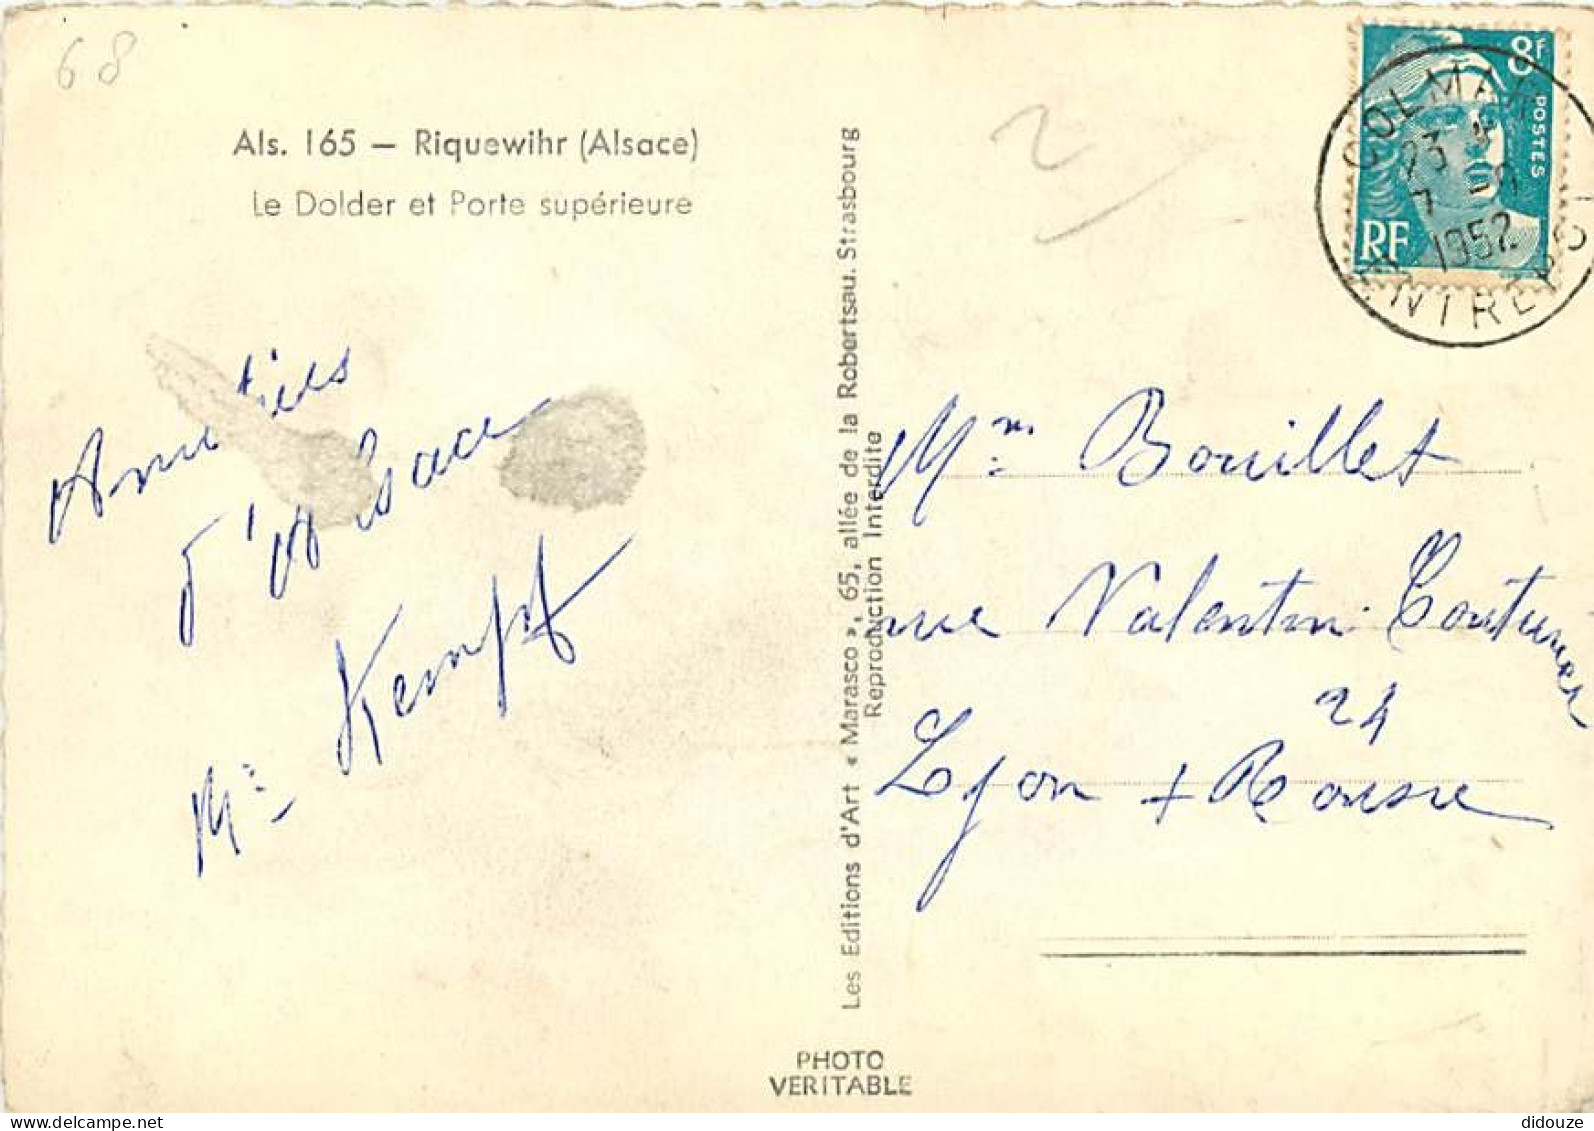 68
Als. 165 — Riquewihr (Alsace)
Le Dolder et Porte supérieure
Amitiés
d'Alsace
Kempf
Les Editions d'Art « Marasco », 65, allée de la Robertsau. Strasbourg
Reproduction Interdite
PHOTO
VERITABLE
2
8F
POSTES
RF
COLMAR
23
7 -9
1952
ENTREPOT
Mm Bouillet
rue Valentin Couturier
24
Lyon + Rousse
delcampe.net
didouze